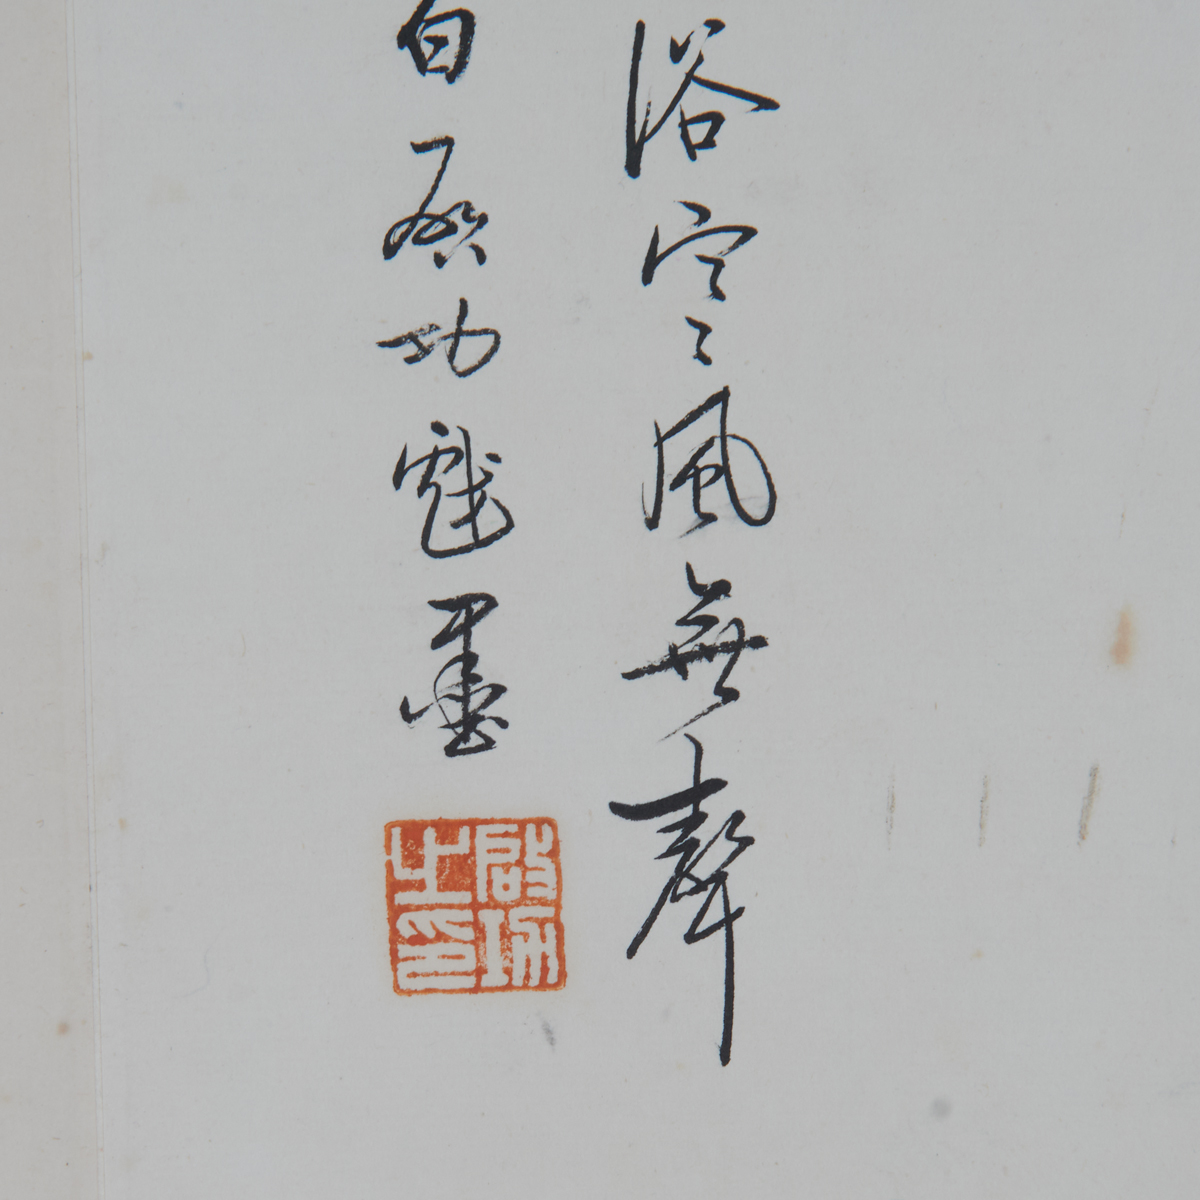 浴寒風無聲
啟功戲墨
啟功之印